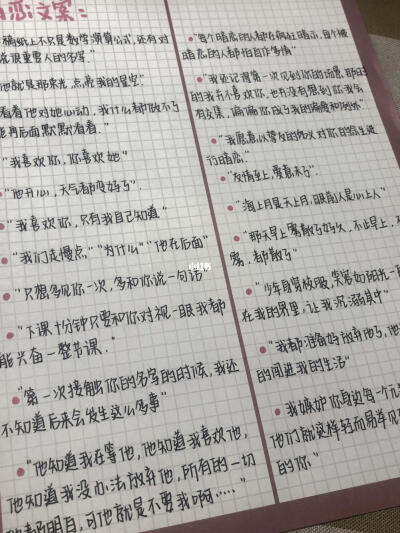 恋文案：
稿纸上不只是数学演算公式，还有对
我很重要人的名字。"
他就是那束光，点亮我的星空"
看着他对她心动，我什么都做不了
能再后面默默看着。"
"我喜欢你，你喜欢她"
"他开心，天气都变好了"
"我喜欢你，只有我自己知道"
"我们走慢点""为什么""他在后面"
"只想多见你一次，多和你说一句话"
"下课十分钟只要和你对视一眼我都
能兴奋一整节课."
"第一次接触你的名字的时候，我还
不知道后来会发生这么多事"
"他知道我在等他，他知道我喜欢他，
他知道我没办法放弃他，所有的一切
他都明目，可他就是不要我啊……"
"每个暗恋的人都在疯狂暗示，每个被
暗恋的人都怕自作多情"
"我还记得第一次见到你的场景，那时
的我并不喜欢你，也并没有想到你我会
有交集，偏偏你成了我的偏爱和例外"
"我愿意以挚友的名义对你的余生进
行暗恋."
"友情至上，爱意未了"
"海上月是天上月，眼前人是心上人"
"那天早上雾散了好久，不止早上，不
雾，都散了"
"少年身着校服，笑容如阳光一
在我的界里，让我沉溺其中"
"我都准备好放弃他了，他
的闯进我的生活"
"我嫉妒你身边每一个
他们就这样轻而易举
的你"